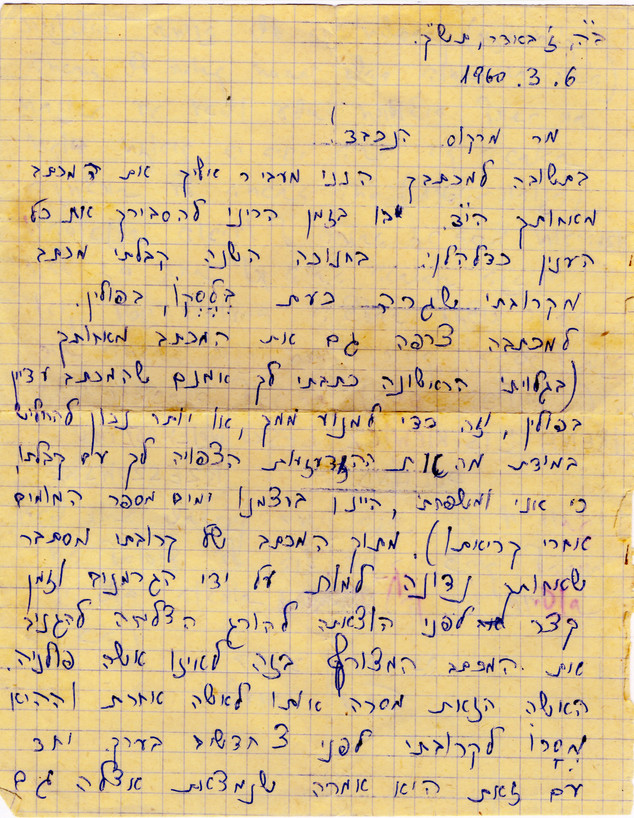 ב"ה, ז' באדר, תש"ך.
6. 3. 1960
מר מרקוס הנכבד!
בתשובה למכתבך הנני מעביר אליך את המכתב
מאחותך הי"ד. בו בזמן הריני להסבירך את כל
הענין כדלהלן. בחנוכה השנה קבלתי מכתב
מקרובתי שגרה כעת בְּלֶסְקוֹ, בפולין.
למכתבה צרפה גם את המכתב מאחותך
(בגלויתי הראשונה כתבתי לך אמנם שהמכתב עדיין
בפולין, וזה כדי למנוע ממך, או יותר נכון להחליש
במידת מה את ההזדעזעות הצפויה לך עם קבלתו,
כי אני ומשפחתי, היינו ברצמנו ימים מספר המומים
אחרי קריאתו). מתוך המכתב של קרובתי מסתבר
שאחותך נדונה למות על ידי הגרמנים וזמן
קצר לפני הוצאתה להורג הצליחה להגניב
את המכתב המצורף בזה לאיזו אשה פולניה.
האשה הזאת מסרה אותו לאשה אחרת וההיא
מְסָרוֹ לקרובתי לפני 3 חדשים בערך. יחד
עם זאת היא אמרה שנמצאת אצלה גם